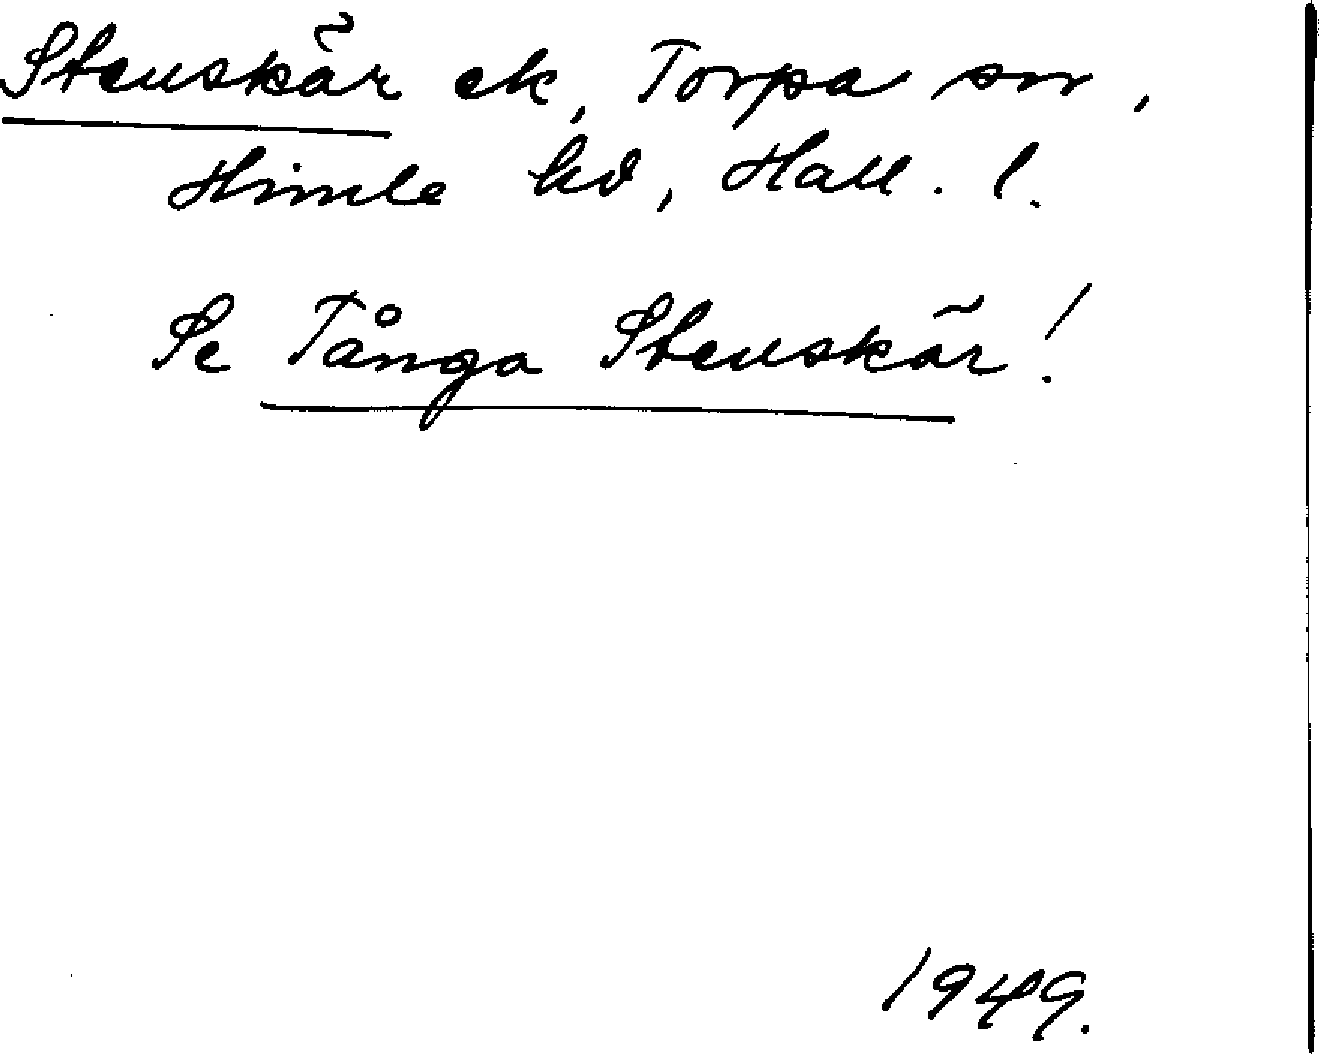 Stenskär ek, Torpa sn,
Himle hd, Hall. l.
Se Tånga Stenskär!
1949.